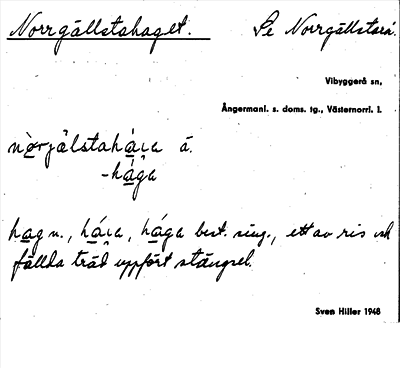 Norrgällstahaget. Se Norrgällstarå.
Vibyggerå sn,
Ångermanl. s. doms. tg., Västernorrl. l.
nòrjälstahá̱ıa å.
-há̱ga
hag n., há̱ıa, há̱ga best. sing., ett av ris och
fällda träd uppfört stängsel.
Sven Hiller 1948